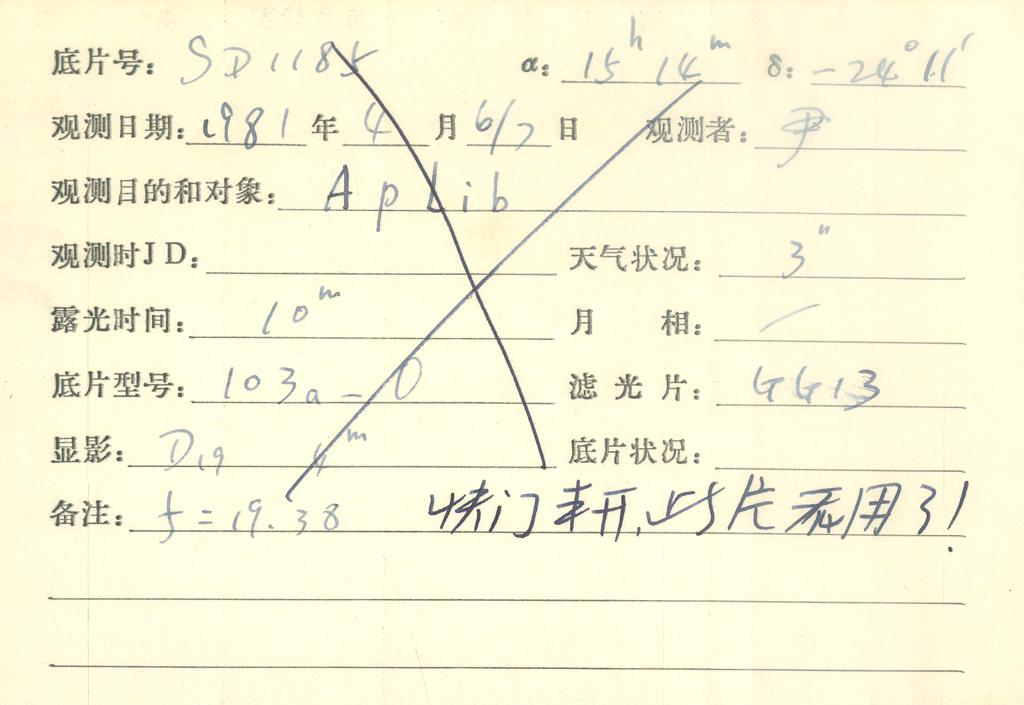 底片号: SD1185 α: 15h 14m δ: -24°11′
观测日期: 1981 年 4 月 6/7 日 观测者: 尹
观测目的和对象: Ap Lib
观测时JD: 天气状况: 3"
露光时间: 10m 月 相: —
底片型号: 103a-O 滤光片: GG13
显影: D19 4m 底片状况:
备注: f=19.38 快门未开,此片不用了!